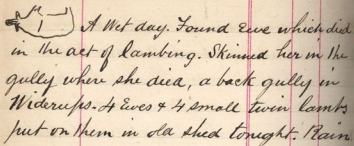 1 A Wet day. Found Ewe which died
in the act of lambing. Skinned her in the
gully where she died, a back gully in
Widerups. 4 Ewes & 4 small twin lambs
put on them in old shed tonight. Rain